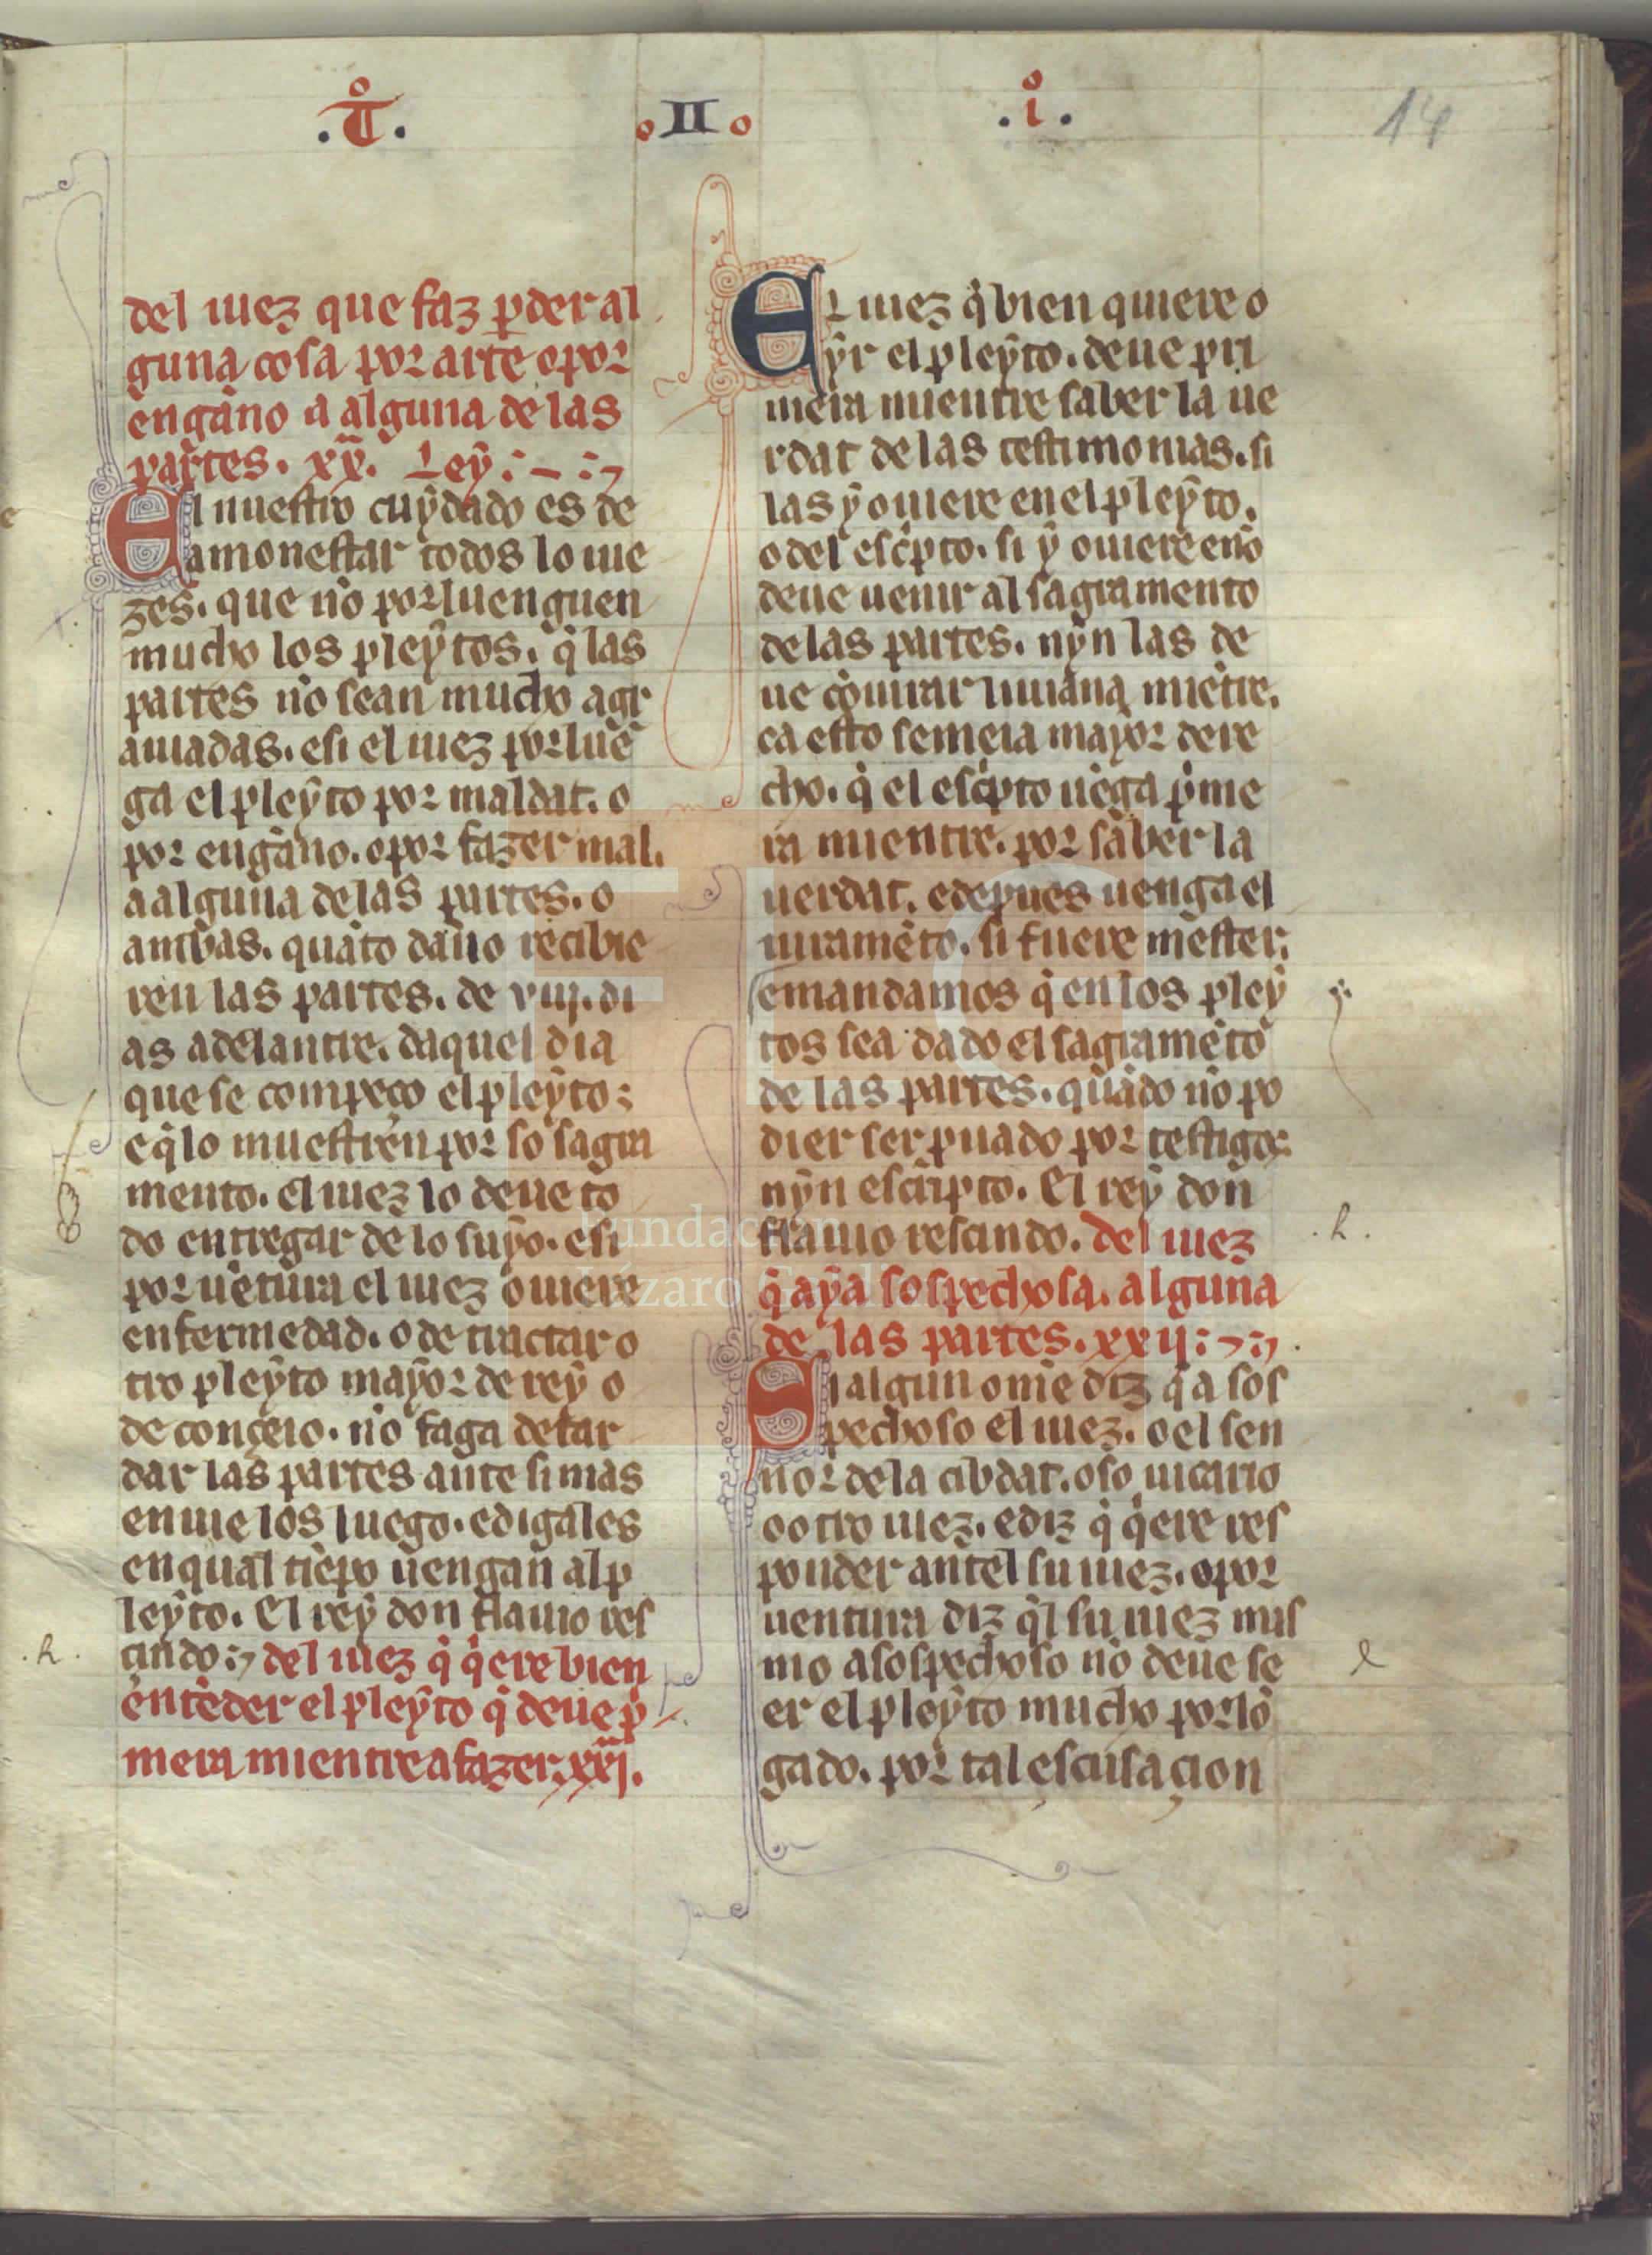 .T̊. .II. .i̊.
14
del iuez que faz ꝑder al
guna cosa por arte o por
engãno a alguna de las
partes. xx. Ley
El nuestro cuydado es de
amonestar todos lo iue
zes. que nõ porluenguen
mucho los pleytos. q̃ las
partes nõ sean mucho agr
auiadas. e si el iuez porluẽ
ga el pleyto por maldat. o
por engãno. o por fazer mal.
a alguna de las partes. o
ambas. quãto daño recibie
ren las partes. de viij. di
as adelantre. daquel dia
que se compeço el pleyto:
e q̃lo muestren por so sagra
mento. el iuez lo deue to
do entregar de lo suyo. e si
por uẽtura el iuez ouiere
enfermedad. o de tractar o
tro pleyto mayor de rey o
de conçeio. nõ faga detar
dar las partes ante si mas
enuie los luego. e digales
en qual tiẽpo uengan al p
leyto. El rey don flauio res
cindo del iuez q̃ q̃ere bien
.h.
entẽder el pleyto q̃ deue p̃
mera mientre a fazer. xxj.
El iuez q̃ bien quiere o
yr el pleyto. deue pri
mera mientre saber la ue
rdat de las testimonias. si
las y ouiere en el pleyto.
o del esc̃pto. si y ouiere e nõ
deue uenir al sagramento
de las partes. nyn las de
ue cõiurar liuiana miẽtre.
ca esto semeia mayor dere
cho. q̃ el esc̃pto uẽga p̃me
ra mientre. por saber la
uerdat. e depues uenga el
iuramẽto. si fuere mẽster.
e mandamos q̃ en los pley
tos sea dado el sagramẽto
de las partes. quãdo nõ po
dier ser puado por testigos
nyn escripto. El rey don
flauio rescindo. del iuez
.h.
q̃ aya sospechosa. alguna
de las partes. xxij
Si algun ome diz q̃ a sos
pechoso el iuez. o el sen
nor de la cibdat. o so uicario
o otro iuez. e diz q̃ q̃ere res
ponder antel su iuez. o por
uentura diz q̃l su iuez mis
mo a sospechoso nõ deue se
er el pleyto mucho porlõ
gado. por tal escusaçion
Fundación
Lázaro Galdiano
FLG